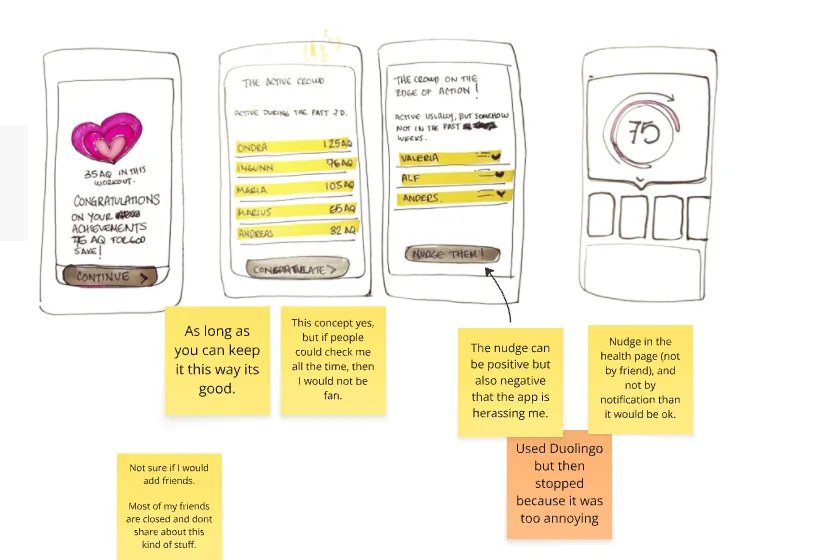 35 AQ IN THIS
WORKOUT.
CONGRATULATIONS
ON YOUR
ACHIEVEMENTS
SAVE!
CONTINUE >
THE ACTIVE CROWD
ACTIVE DURING THE PAST 7 D.
ONDRA 125 AQ
INGUNN 76 AQ
MARIA 105 AQ
MARIUS 65 AQ
ANDREAS 82 AQ
CONGRATULATE >
THE CROWD ON THE
EDGE OF ACTION!
ACTIVE USUALLY, BUT SOMEHOW
NOT IN THE PAST
WEEKS.
VALERIA
ALF
ANDERS.
NUDGE THEM!
75
As long as
you can keep
it this way its
good.
This concept yes,
but if people
could check me
all the time, then
I would not be
fan.
The nudge can
be positive but
also negative
that the app is
herassing me.
Nudge in the
health page (not
by friend), and
not by
notification than
it would be ok.
Used Duolingo
but then
stopped
because it was
too annoying
Not sure if I would
add friends.
Most of my friends
are closed and dont
share about this
kind of stuff.